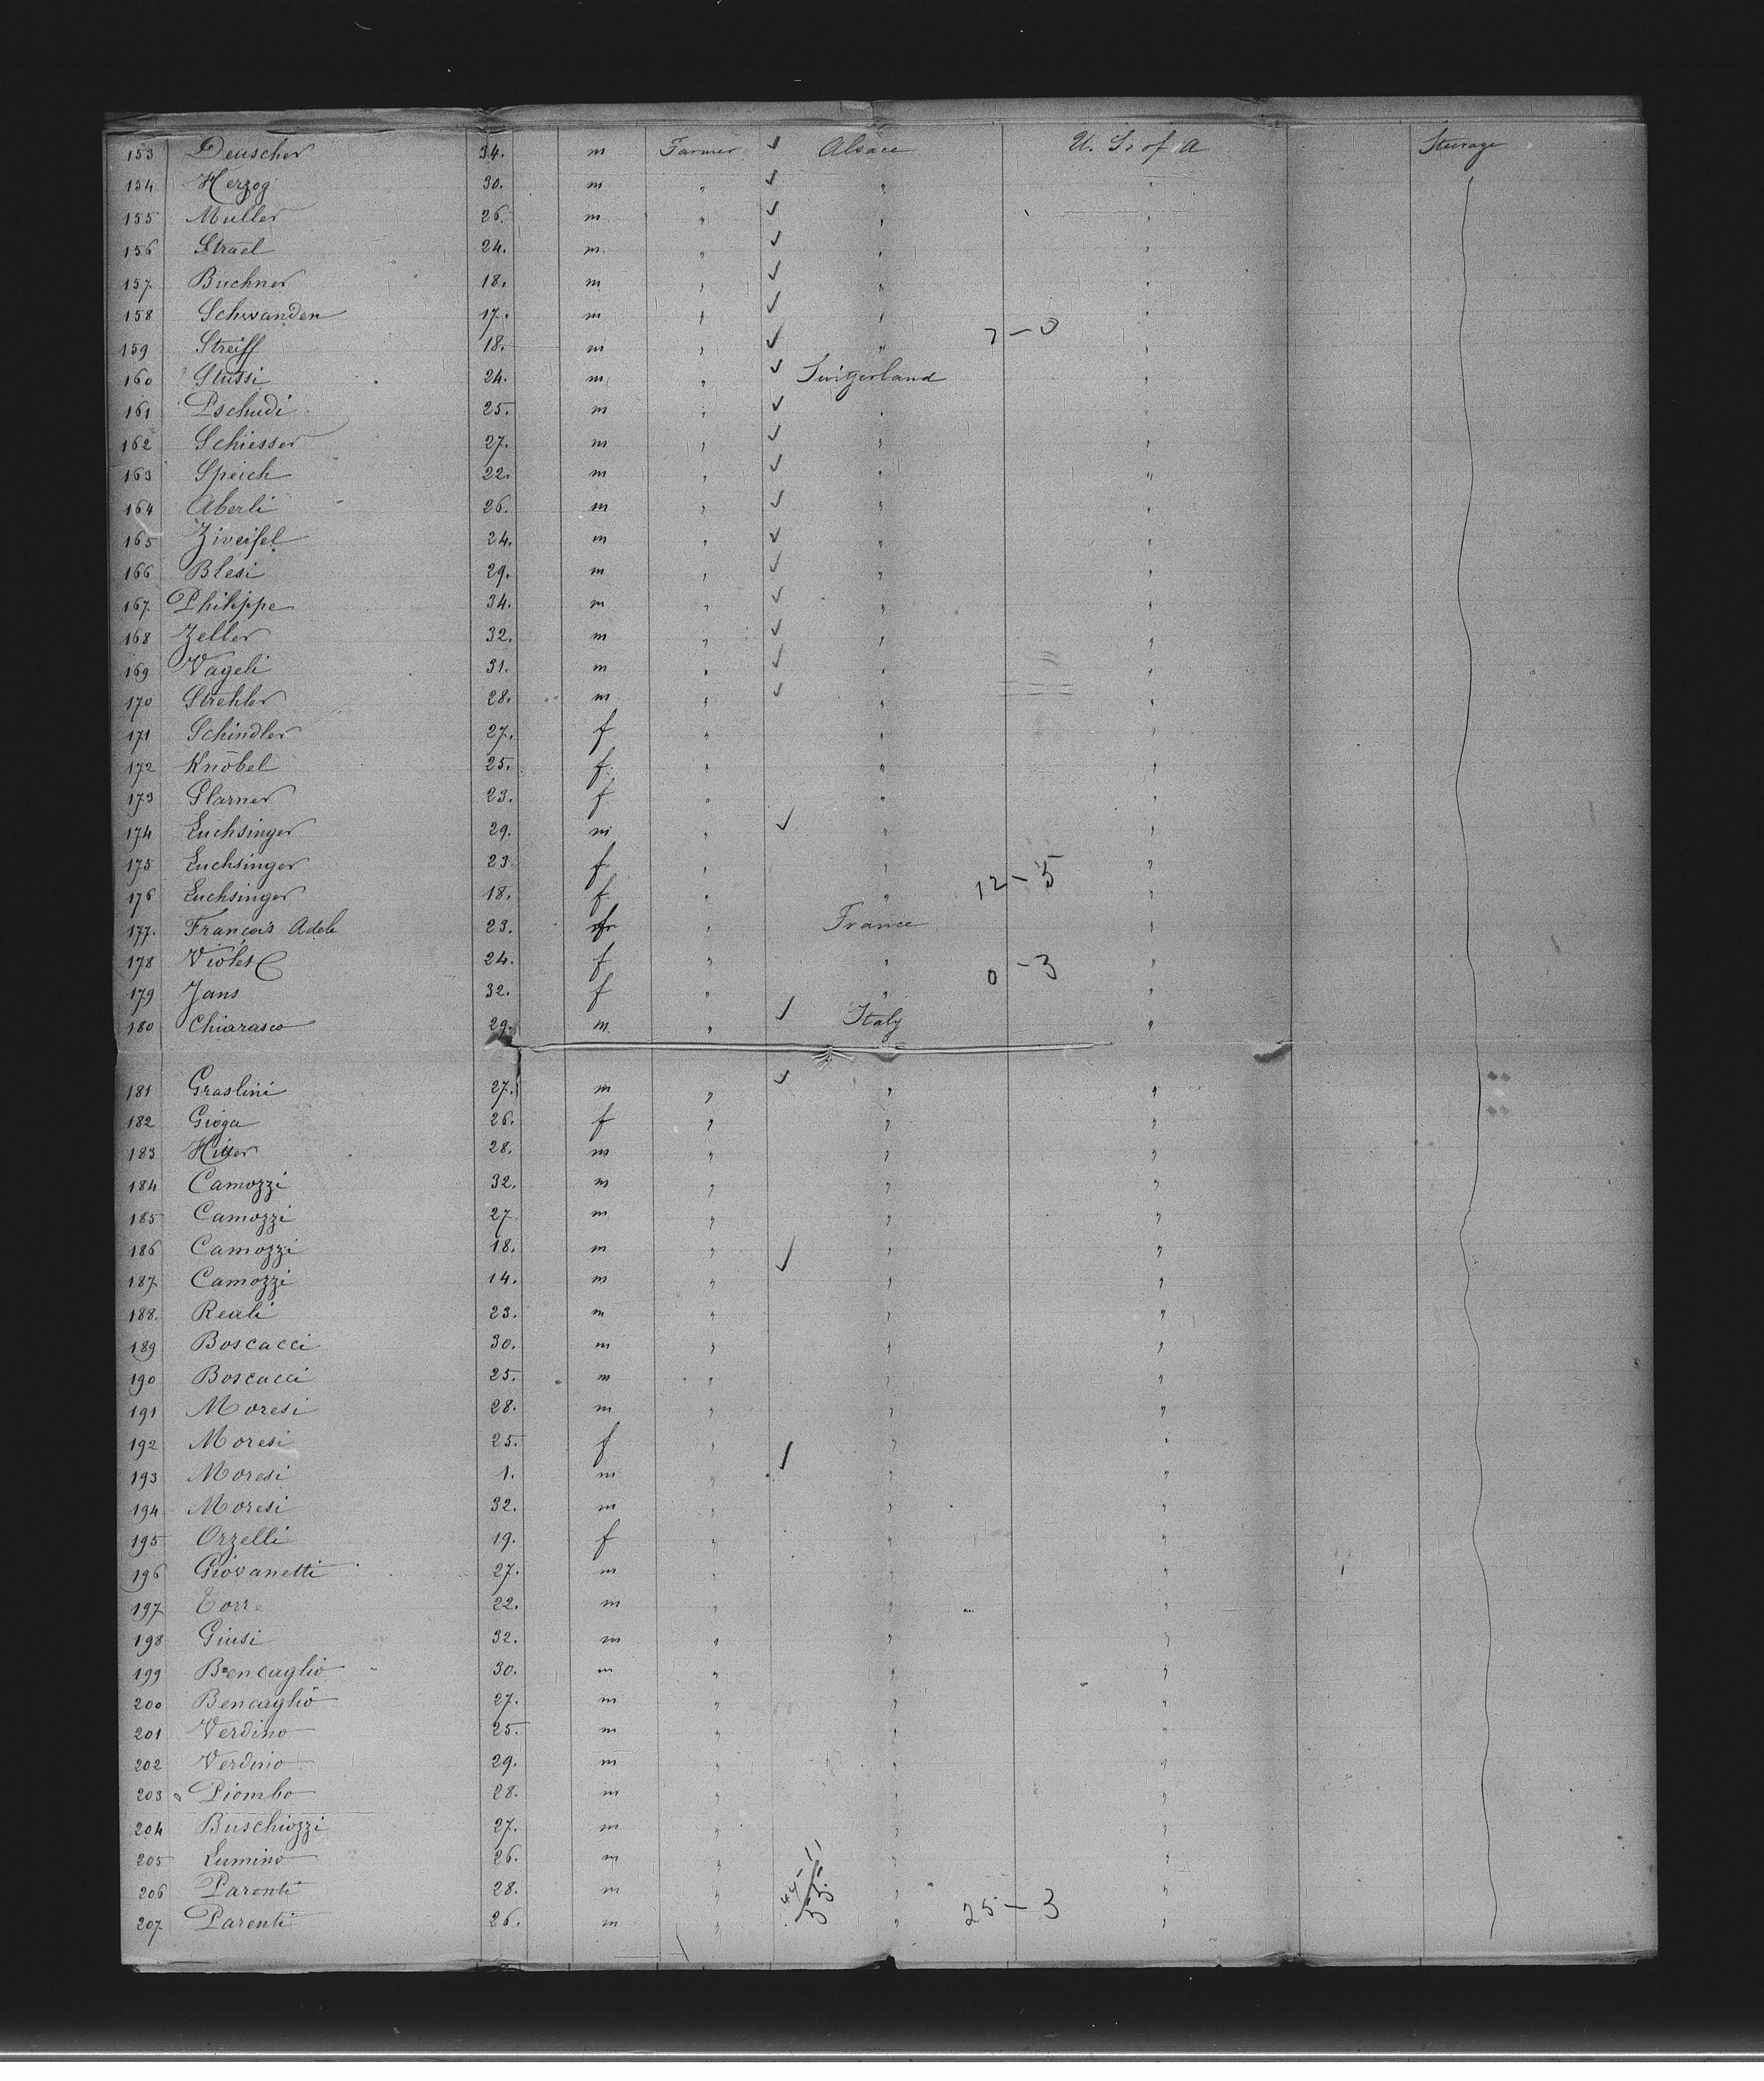 153 Deuscher 34. m Farmer ✓ Alsace U. S. of A Steerage
154 Herzog 30. m " ✓ " "
155 Muller 26. m " ✓ " "
156 Strael 24. m " ✓ " "
157 Buchner 18. m " ✓ " "
158 Schwanden 17. m " ✓ " "
159 Streiff 18. m " ✓ " 7-0 "
160 Stüssi 24. m " ✓ Switzerland "
161 Tschudi 25. m " ✓ " "
162 Schiesser 27. m " ✓ " "
163 Speich 22. m " ✓ " "
164 Aberli 26. m " ✓ " "
165 Zweifel 24. m " ✓ " "
166 Blesi 29. m " ✓ " "
167 Philippe 34. m " ✓ " "
168 Zeller 32. m " ✓ " "
169 Vageli 31. m " ✓ " "
170 Strehler 28. m " ✓ " "
171 Schindler 27. f " " "
172 Knöbel 25. f " " "
173 Glarner 23. f " " "
174 Luchsinger 29. m " ✓ " "
175 Luchsinger 23. f " " "
176 Luchsinger 18. f " " 12-5 "
177. François Adele 23. f " France "
178 Violet 24. f " " 0-3 "
179 Jans 32. f " " "
180 Chiarasco 29. m " ✓ Italy "
181 Graslini 27. m " ✓ " "
182 Gioga 26. f " " "
183 28. m " " "
184 Camozzi 32. m " " "
185 Camozzi 27 m " " "
186 Camozzi 18. m " ✓ " "
187 Camozzi 14. m " " "
188. Reali 23. m " " "
189 Boscacci 30. m " " "
190 Boscacci 25. m " " "
191 Moresi 28. m " " "
192 Moresi 25. f " " "
193 Moresi 1. m " ✓ " "
194 Moresi 32. m " " "
195 Orzelli 19. f " " "
196 Giovanetti 27. m " " "
197 Torre 22. m " " "
198 Giusi 32. m " " "
199 Bencaglio 30. m " " "
200 Bencaglio 27. m " " "
201 Verdino 25. m " " "
202 Verdino 29. m " " "
203 Piombo 28. m " " "
204 Buschiozzi 27. m " " "
205 Lumino 26. m " " "
206 Parenti 28. m " 44-11 " "
207 Parenti 26. m " 55 " 25-3 "